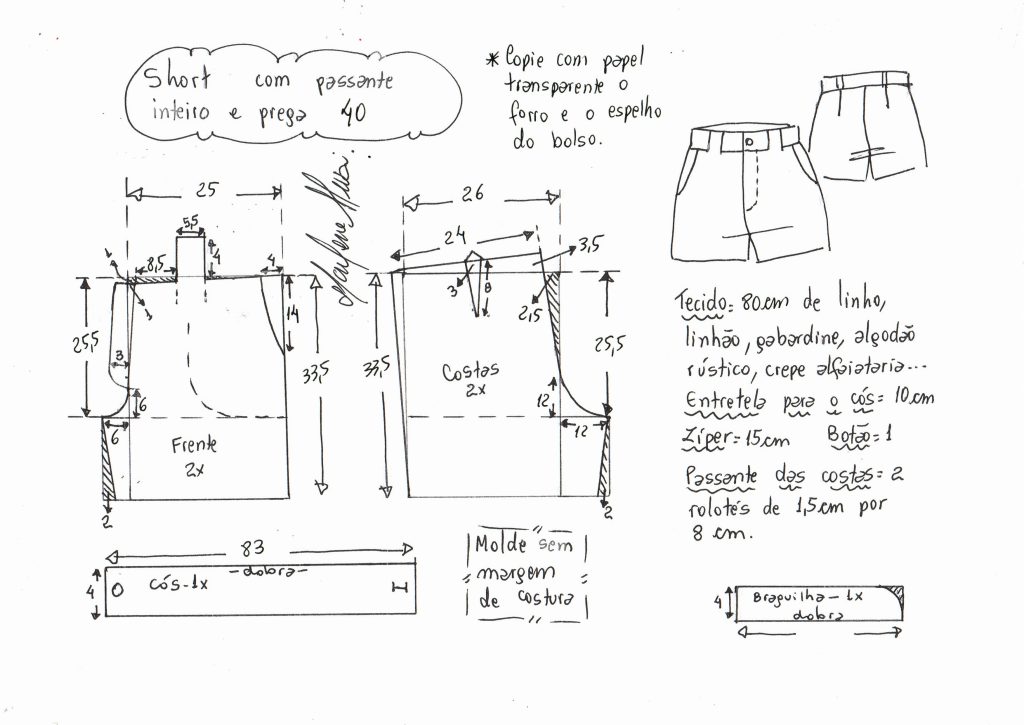 Short com passante
inteiro e prega 40
* Copie com papel
transparente o
forro e o espelho
do bolso.
25
5,5
4
8,5
4
14
25,5
3
6
6
33,5
Frente
2x
2
26
24
3,5
3
8
2,5
33,5
25,5
Costas
2x
12
12
2
Tecido= 80cm de linho,
linhão, gabardine, algodão
rústico, crepe alfaiataria...
Entretela para o cós= 10cm
Zíper= 15cm Botão= 1
Passante das costas= 2
rolotés de 1,5cm por
8 cm.
83
4
cós-1x
-dobra-
Molde sem
margem
de costura
4
Braguilha- 1x
dobra